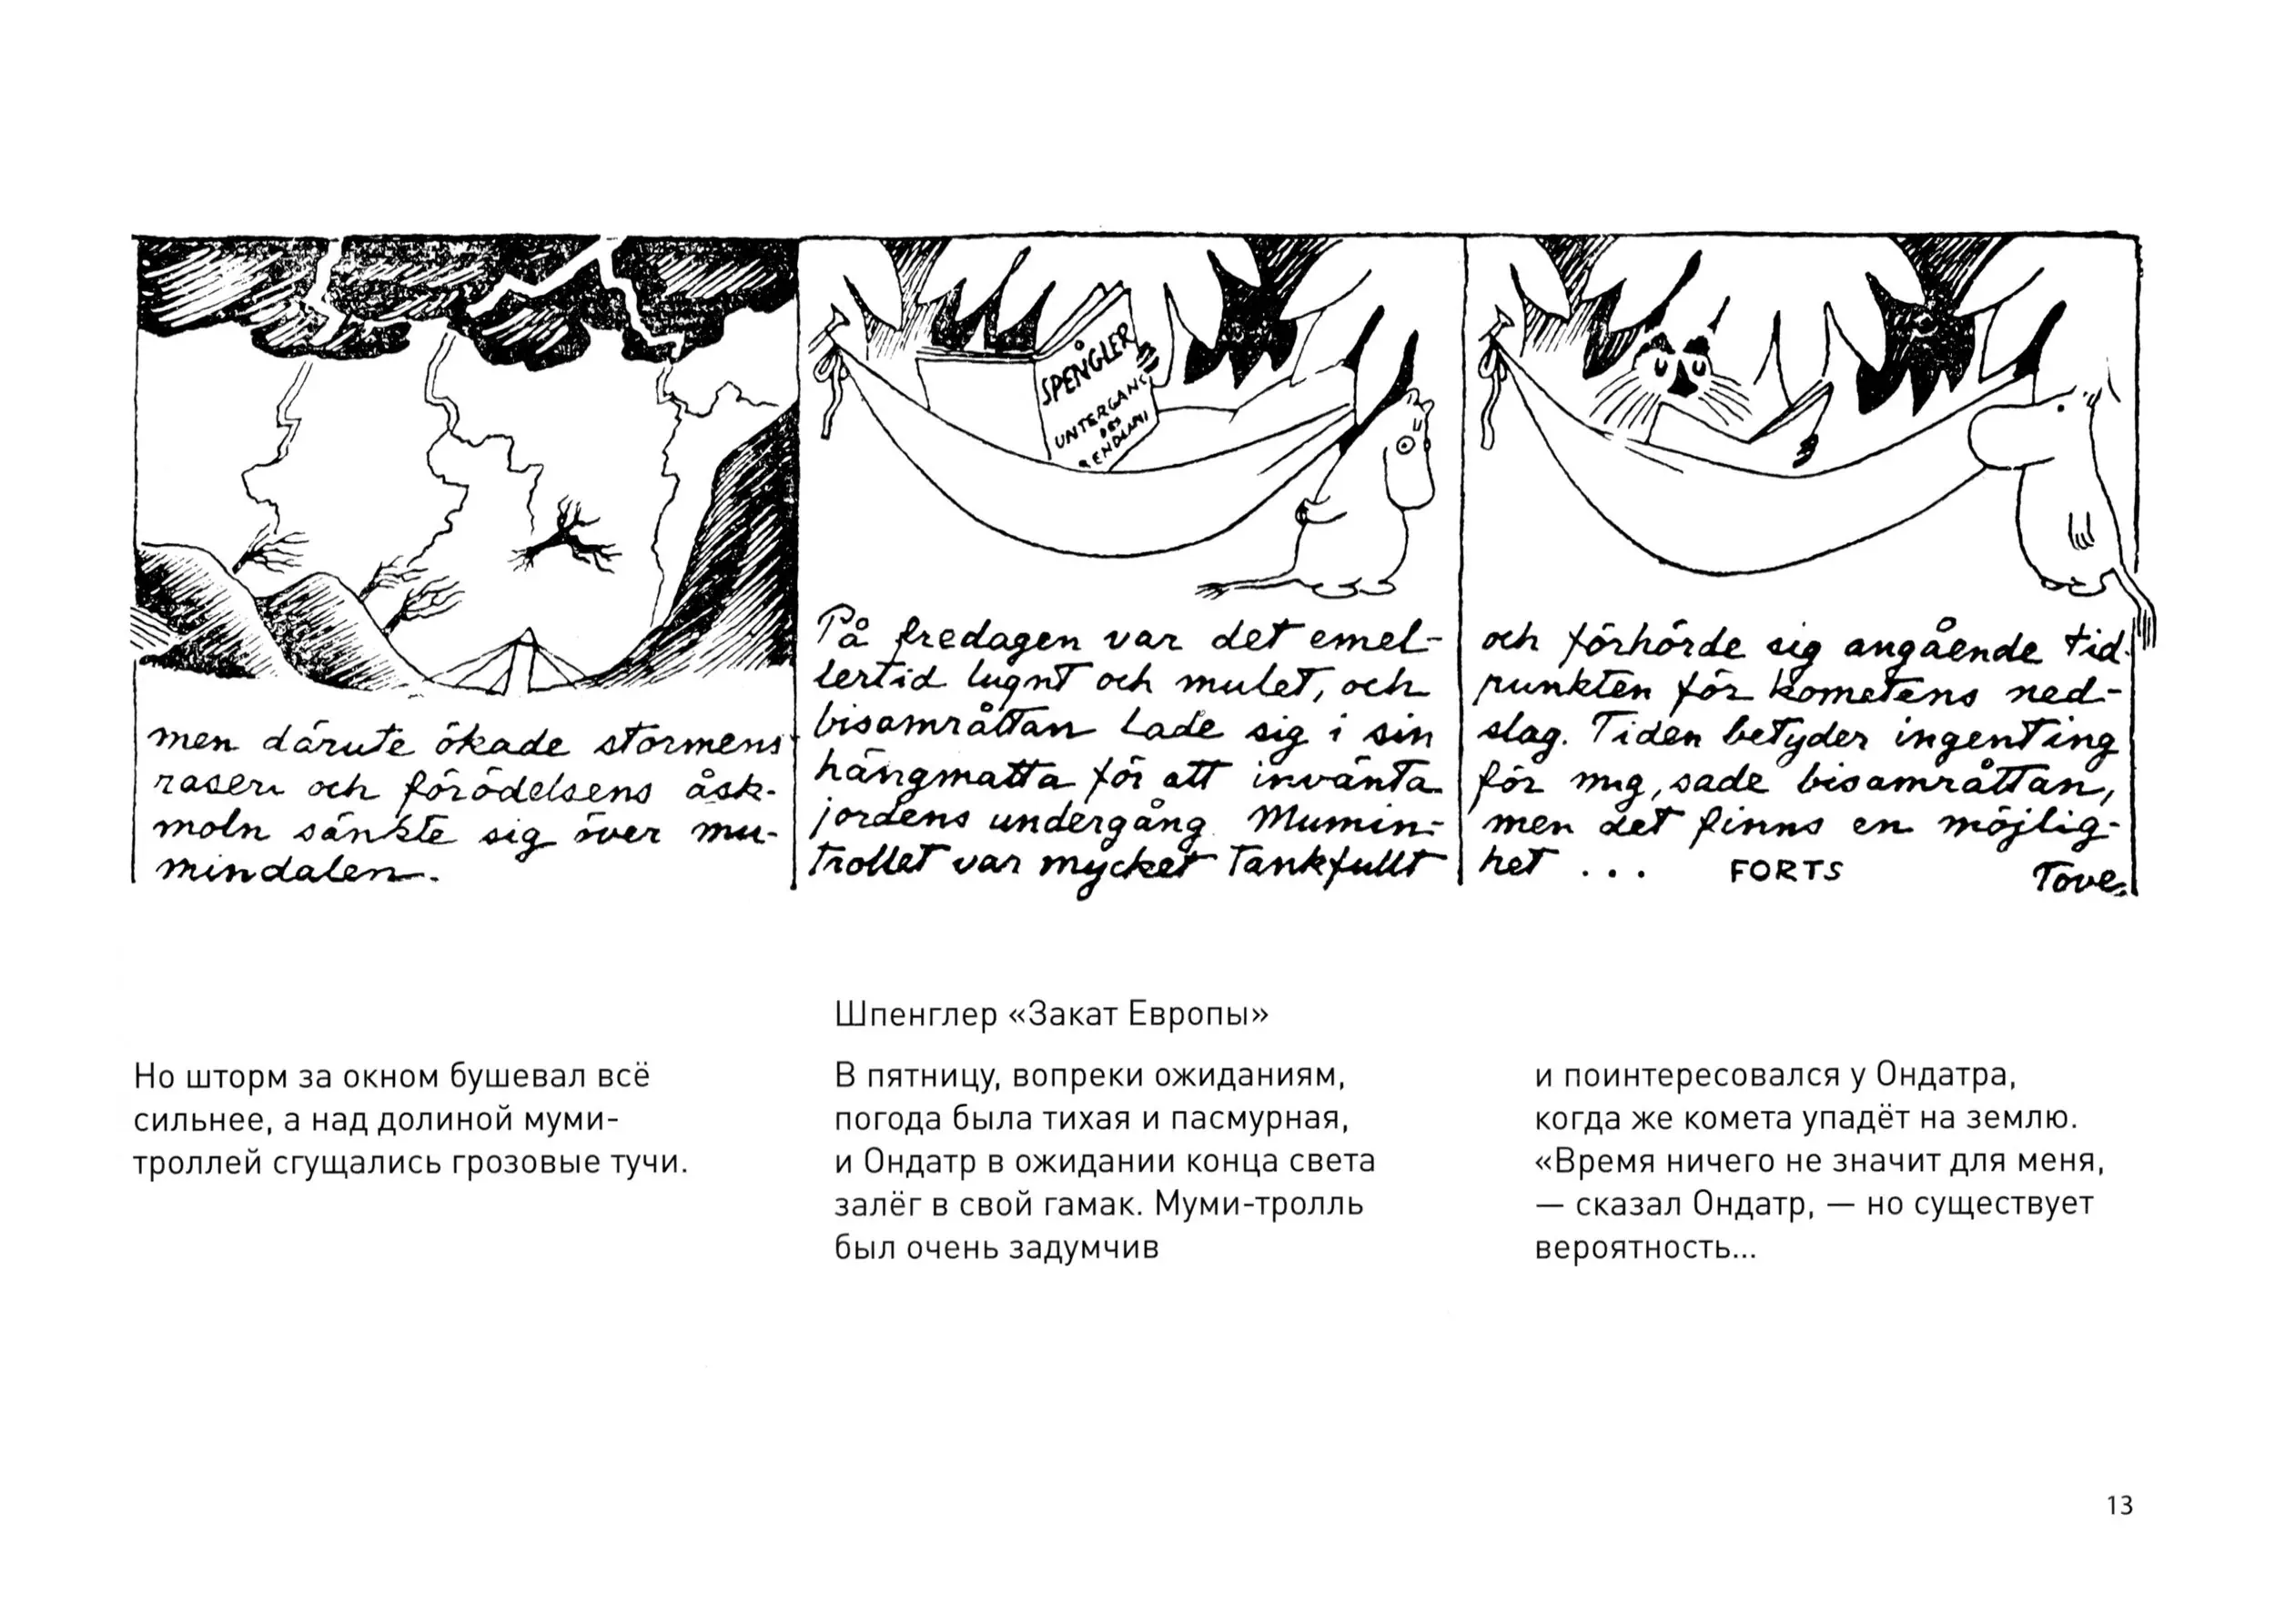 men därute ökade stormens
raseri och förödelsens åsk-
moln sänkte sig över mu-
mindalen.
SPENGLER
UNTERGANG
DES
På fredagen var det emel-
lertid lugnt och mulet, och
bisamråttan lade sig i sin
hängmatta för att invänta
jordens undergång. Mumin-
trollet var mycket tankfullt
och förhörde sig angående tid-
punkten för kometens ned-
slag. Tiden betyder ingenting
för mig, sade bisamråttan,
men det finns en möjlig-
het ... FORTS Tove.
Но шторм за окном бушевал всё
сильнее, а над долиной муми-
троллей сгущались грозовые тучи.
Шпенглер «Закат Европы»
В пятницу, вопреки ожиданиям,
погода была тихая и пасмурная,
и Ондатр в ожидании конца света
залёг в свой гамак. Муми-тролль
был очень задумчив
и поинтересовался у Ондатра,
когда же комета упадёт на землю.
«Время ничего не значит для меня,
— сказал Ондатр, — но существует
вероятность...
13